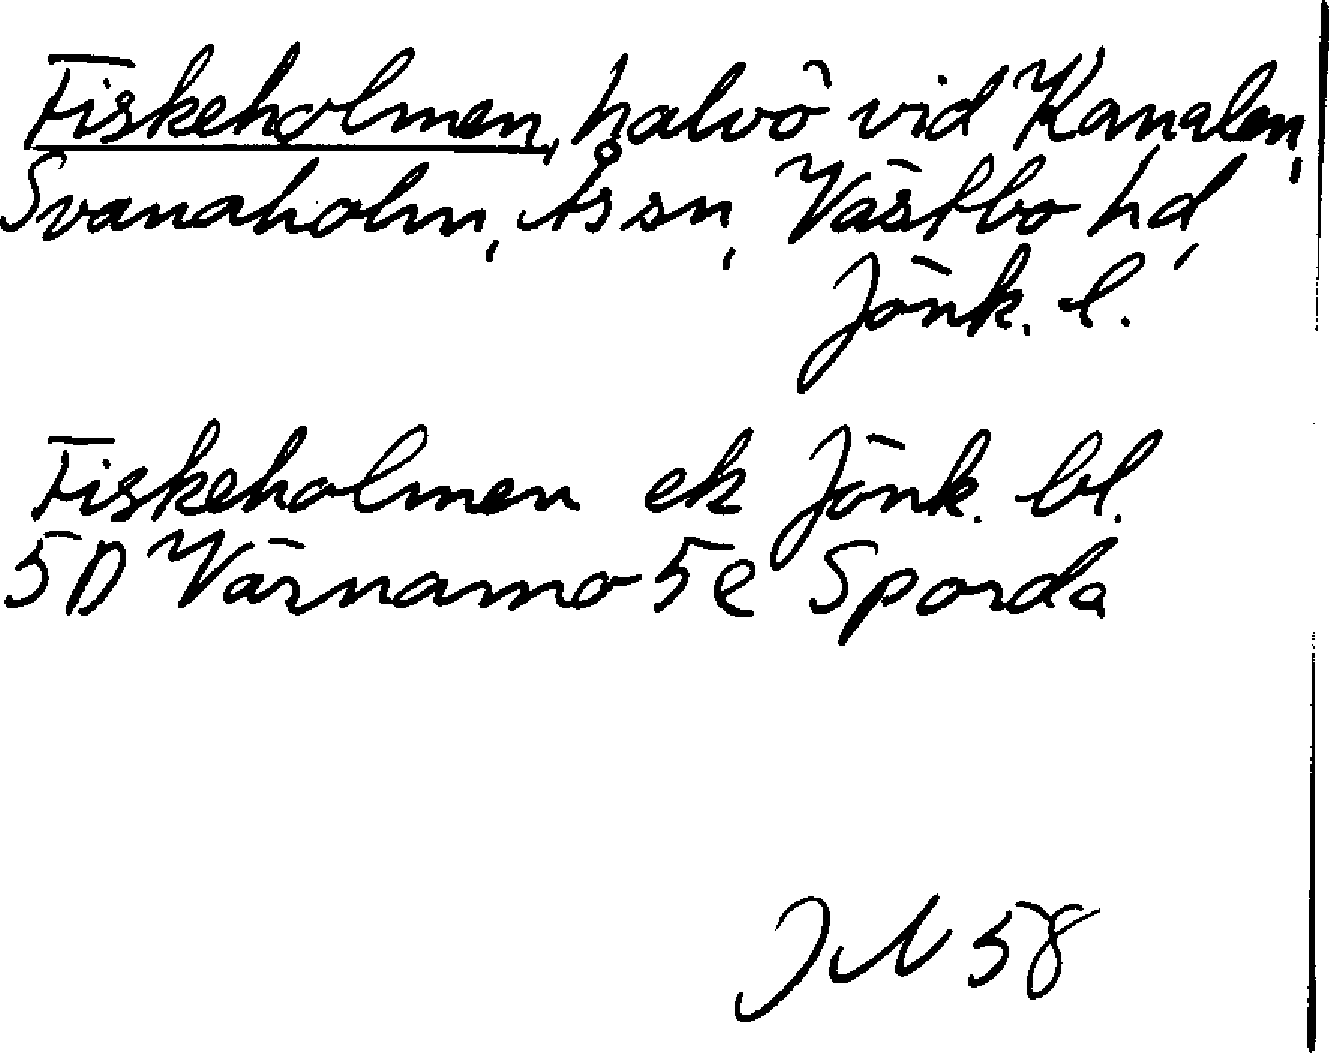 Fiskeholmen, halvö vid Kanalen,
Svanaholm, Ås sn, Västbo hd,
Jönk. l.
Fiskeholmen ek Jönk. bl.
5D Värnamo 5e Sporda
58